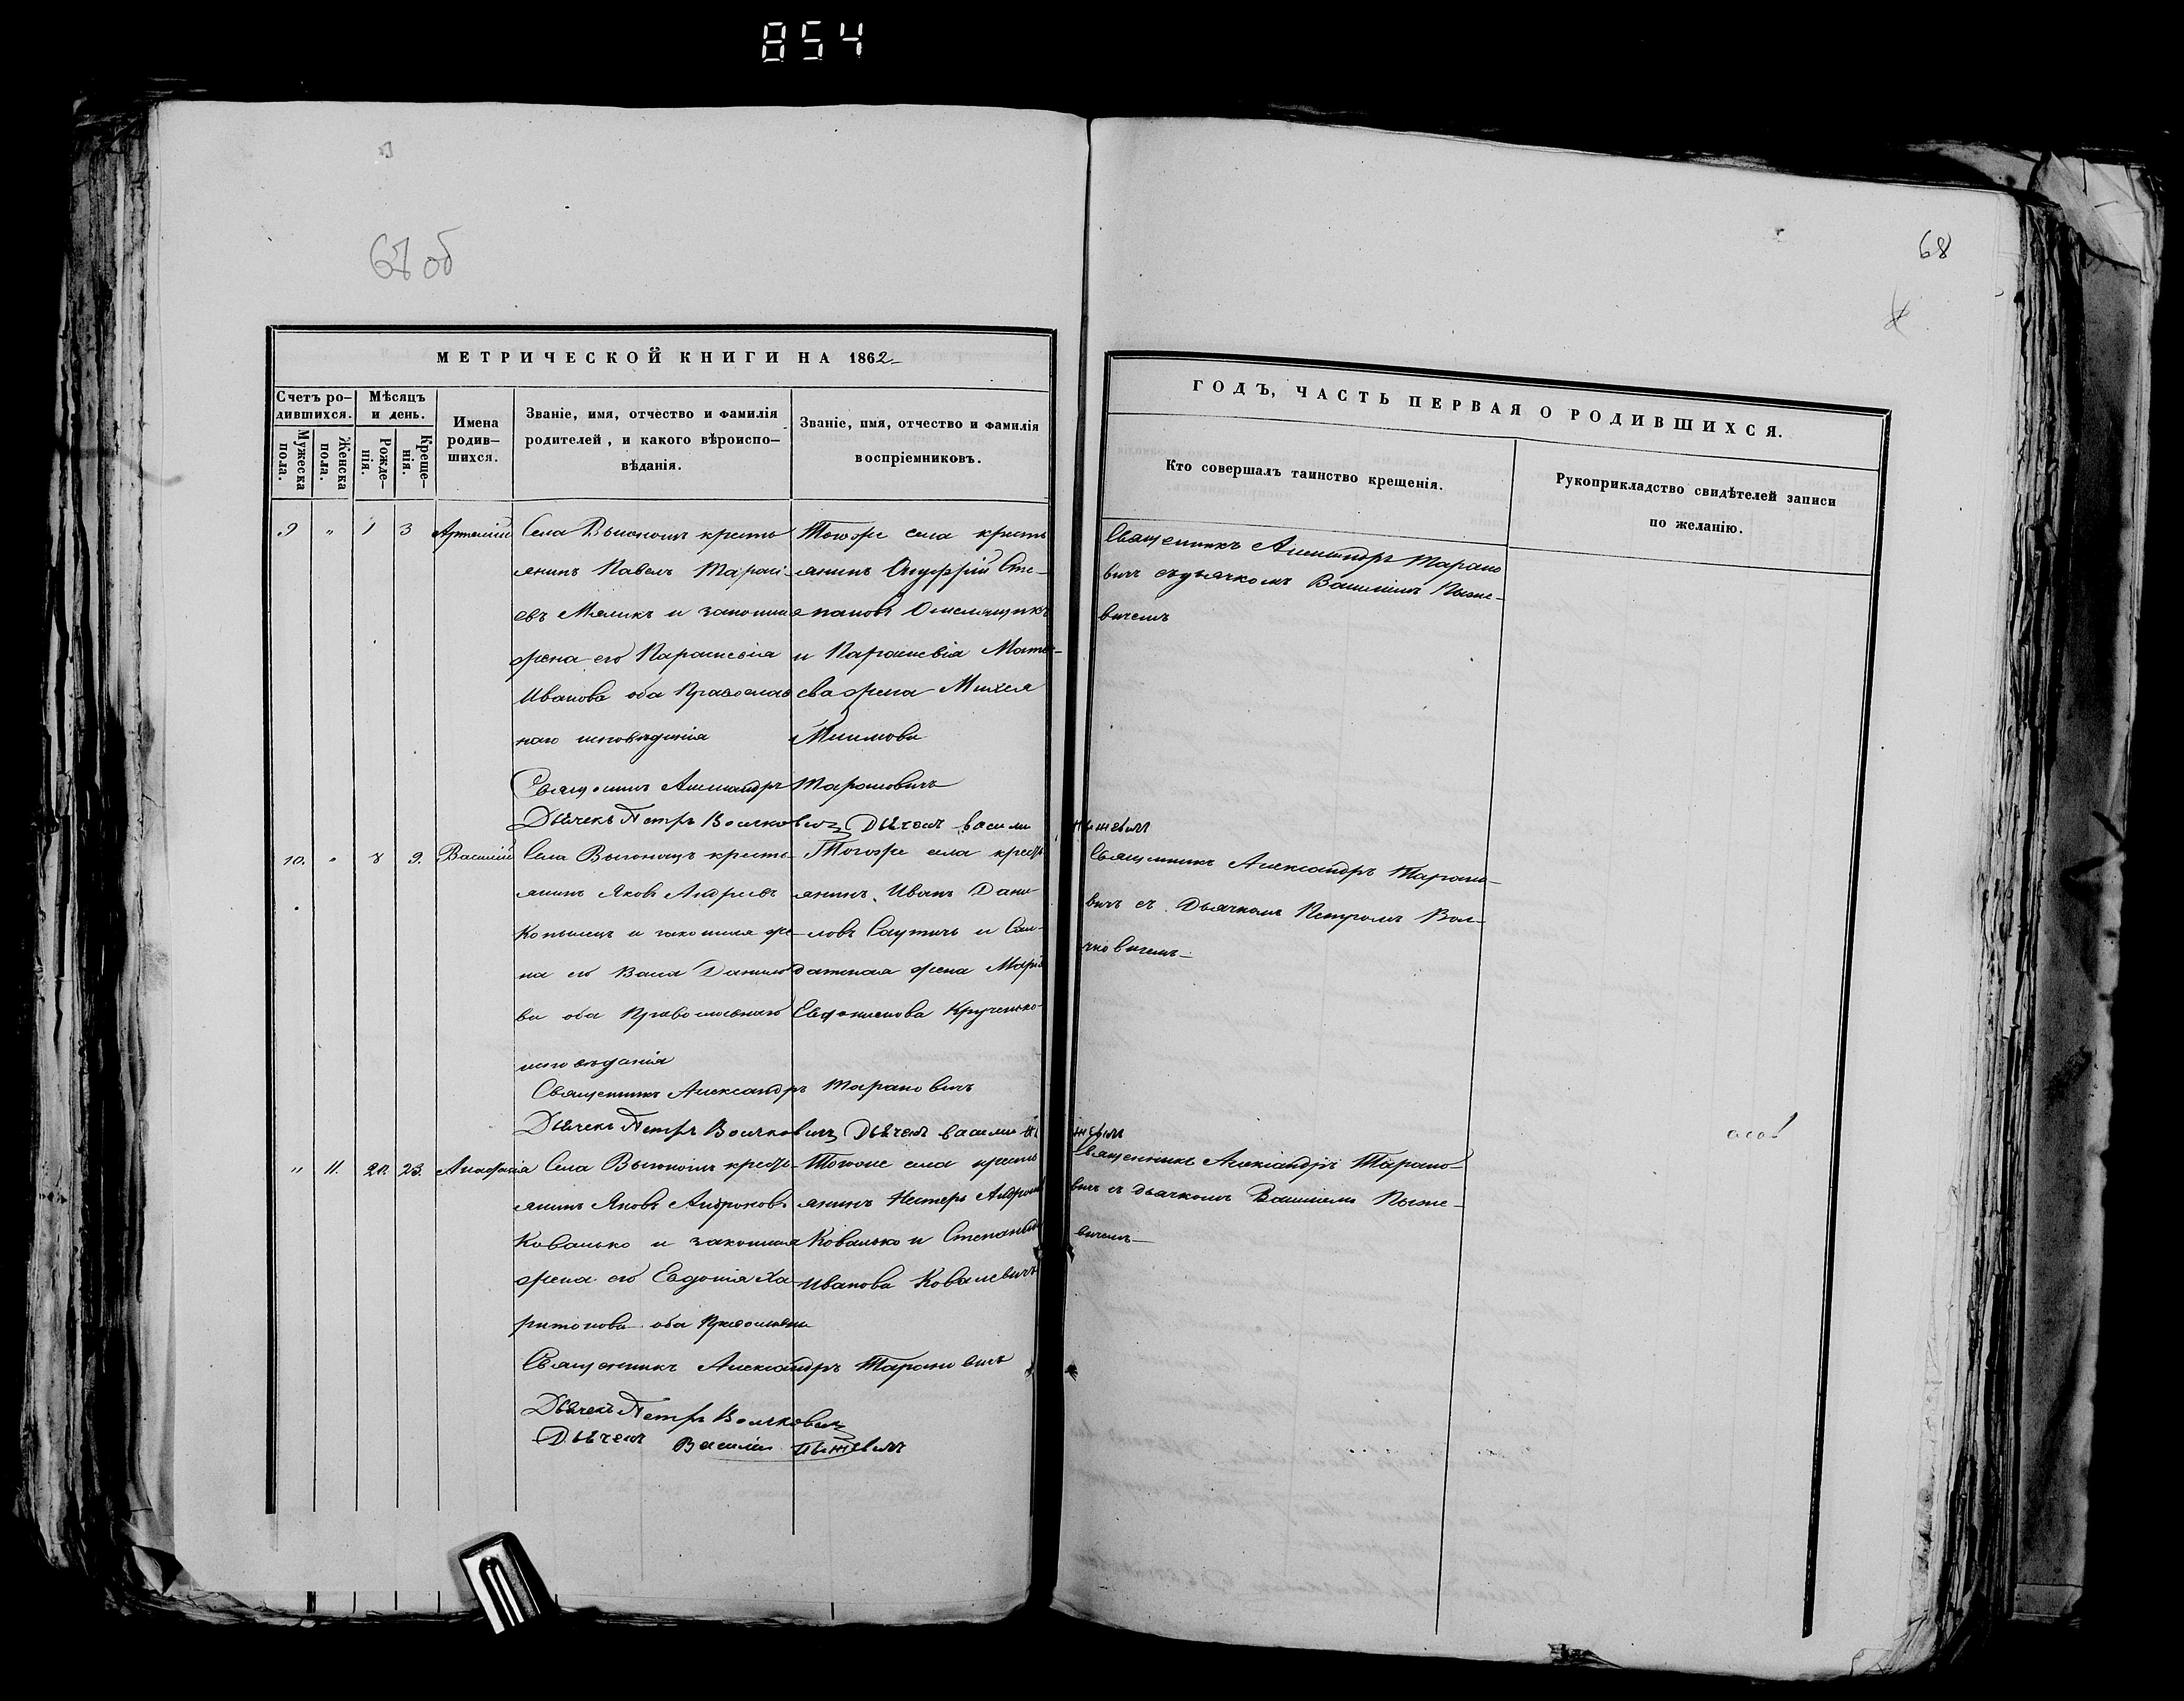 854
68 об
68
МЕТРИЧЕСКОЙ КНИГИ НА 1862
ГОДЪ, ЧАСТЬ ПЕРВАЯ О РОДИВШИХСЯ.
Счетъ ро-
дившихся.
Мужеска
пола.
Женска
пола.
Мѣсяцъ
и день.
Рожде-
нія.
Креще-
нія.
Имена
родив-
шихся.
Званіе, имя, отчество и фамилія
родителей, и какого вѣроиспо-
вѣданія.
Званіе, имя, отчество и фамилія
воспріемниковъ.
Кто совершалъ таинство крещенія.
Рукоприкладство свидѣтелей записи
по желанію.
9 " 1 3 Артемій
Села Выгонощъ кресть
янинъ Павелъ Тарасі-
евъ Мяликъ и законная
жена его Параскевія
Иванова оба Православ
наго исповѣданія
Тогоже села кресть
янинъ Онуфрій Сте-
пановъ
и Параскевія Матѳе-
ева жена Михея
Священникъ Александръ Тарано
вичъ съ дьячкомъ Василіемъ Пыже-
вичемъ
Священникъ Александръ Тарановичъ
Дьячекъ Петръ Волчковичъ Дьячекъ Василій Пыжевичъ
10. " 8 9. Василій
Села Выгонощъ кресть-
янинъ Яковъ Андреевъ
Копылецъ и законная же-
на его Васа Данило
ва оба Православнаго
исповѣданія
Тогоже села кресть
янинъ Иванъ Дани-
ловъ Саутичь и Сол-
датская жена Марія
Священникъ Александръ Тарано-
вичъ съ Дьячкомъ Петромъ Вол-
чковичемъ
Священникъ Александръ Тарановичъ
Дьячекъ Петръ Волчковичъ Дьячекъ Василій Пыжевичъ
" 11. 20. 23. Анафія
Села Выгонощъ кресть-
янинъ Яковъ Андроновъ
Ковалько и законная
жена его Евдокія Ха
ритонова оба Православн
Тогоже села кресть
янинъ Нестеръ Андроновъ
Ковалько и Степанида
Иванова Ковалевичъ
Священникъ Александръ Тарано-
вичъ съ дьячкомъ Василіемъ Пыже-
вичемъ
Священникъ Александръ Тарановичъ
Дьячекъ Петръ Волчковичъ
Дьячекъ Василій Пыжевичъ